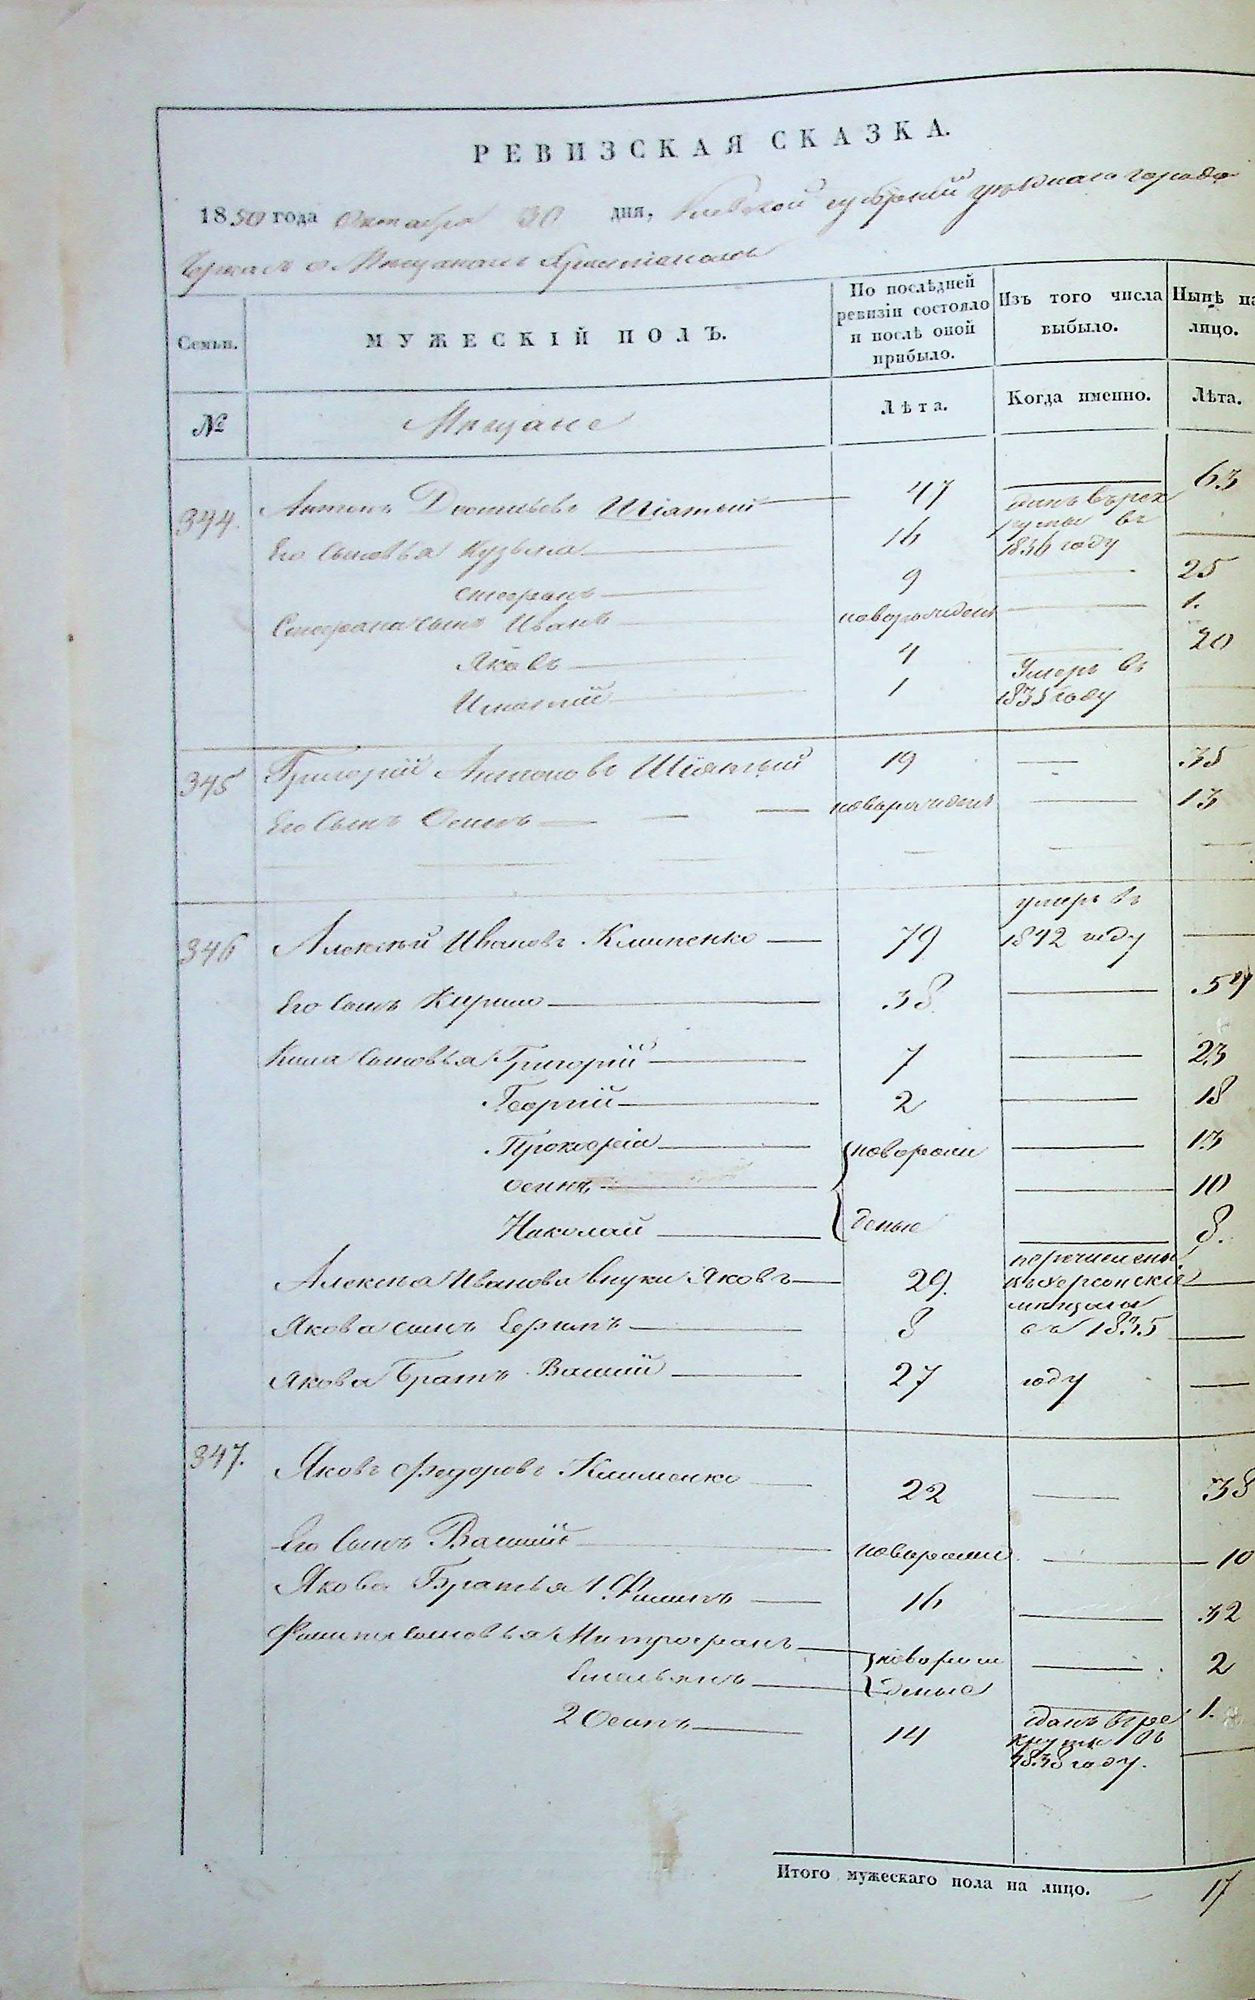 РЕВИЗСКАЯ СКАЗКА.
1850 года Октября 30 дня, Киевской губернии уезднаго города
Черкас о Мещанах Христианах
Семьи. МУЖЕСКІЙ ПОЛЪ. По послѣдней ревизіи состояло и послѣ оной прибыло. Изъ того числа выбыло. Нынѣ на лицо.
№ Мещане Лѣта. Когда именно. Лѣта.
344. Антонъ Шіятый 47 63
Его сыновья Кузьма 16 данъ въ рекруты въ 1836 году
Стефанъ 9 25
Стефана сынъ Иванъ новорожденъ 1.
Яковъ 4 20
Игнатий 1 Умеръ въ 1835 году
345 Григорій Антоновъ Шіятый 19 35
Его сынъ Осипъ новорожденъ 13
346 Алексѣй Ивановъ Клименко 79 умеръ въ 1842 году
Его сынъ Кирило 38 54
Кирила сыновья Григорій 7 23
Георгій 2 18
Прокофій новорожденые 13
Осипъ 10
Николай 8.
Алексѣя Иванова внуки Яковъ 29. перечислены въ херсонскіе мещане въ 1835 году
Якова сынъ Ефимъ 8
Якова Братъ Василий 27
347. Яковъ Федоровъ Клименко 22 38
Его сынъ Василий новорожден 10
Якова Братья 1 Филипъ 16 32
Филипа сыновья Митрофанъ новорожденые 2
Емельянъ 1.
2 Осипъ 14 данъ в рекруты въ 1838 году.
Итого мужескаго пола на лицо. 17